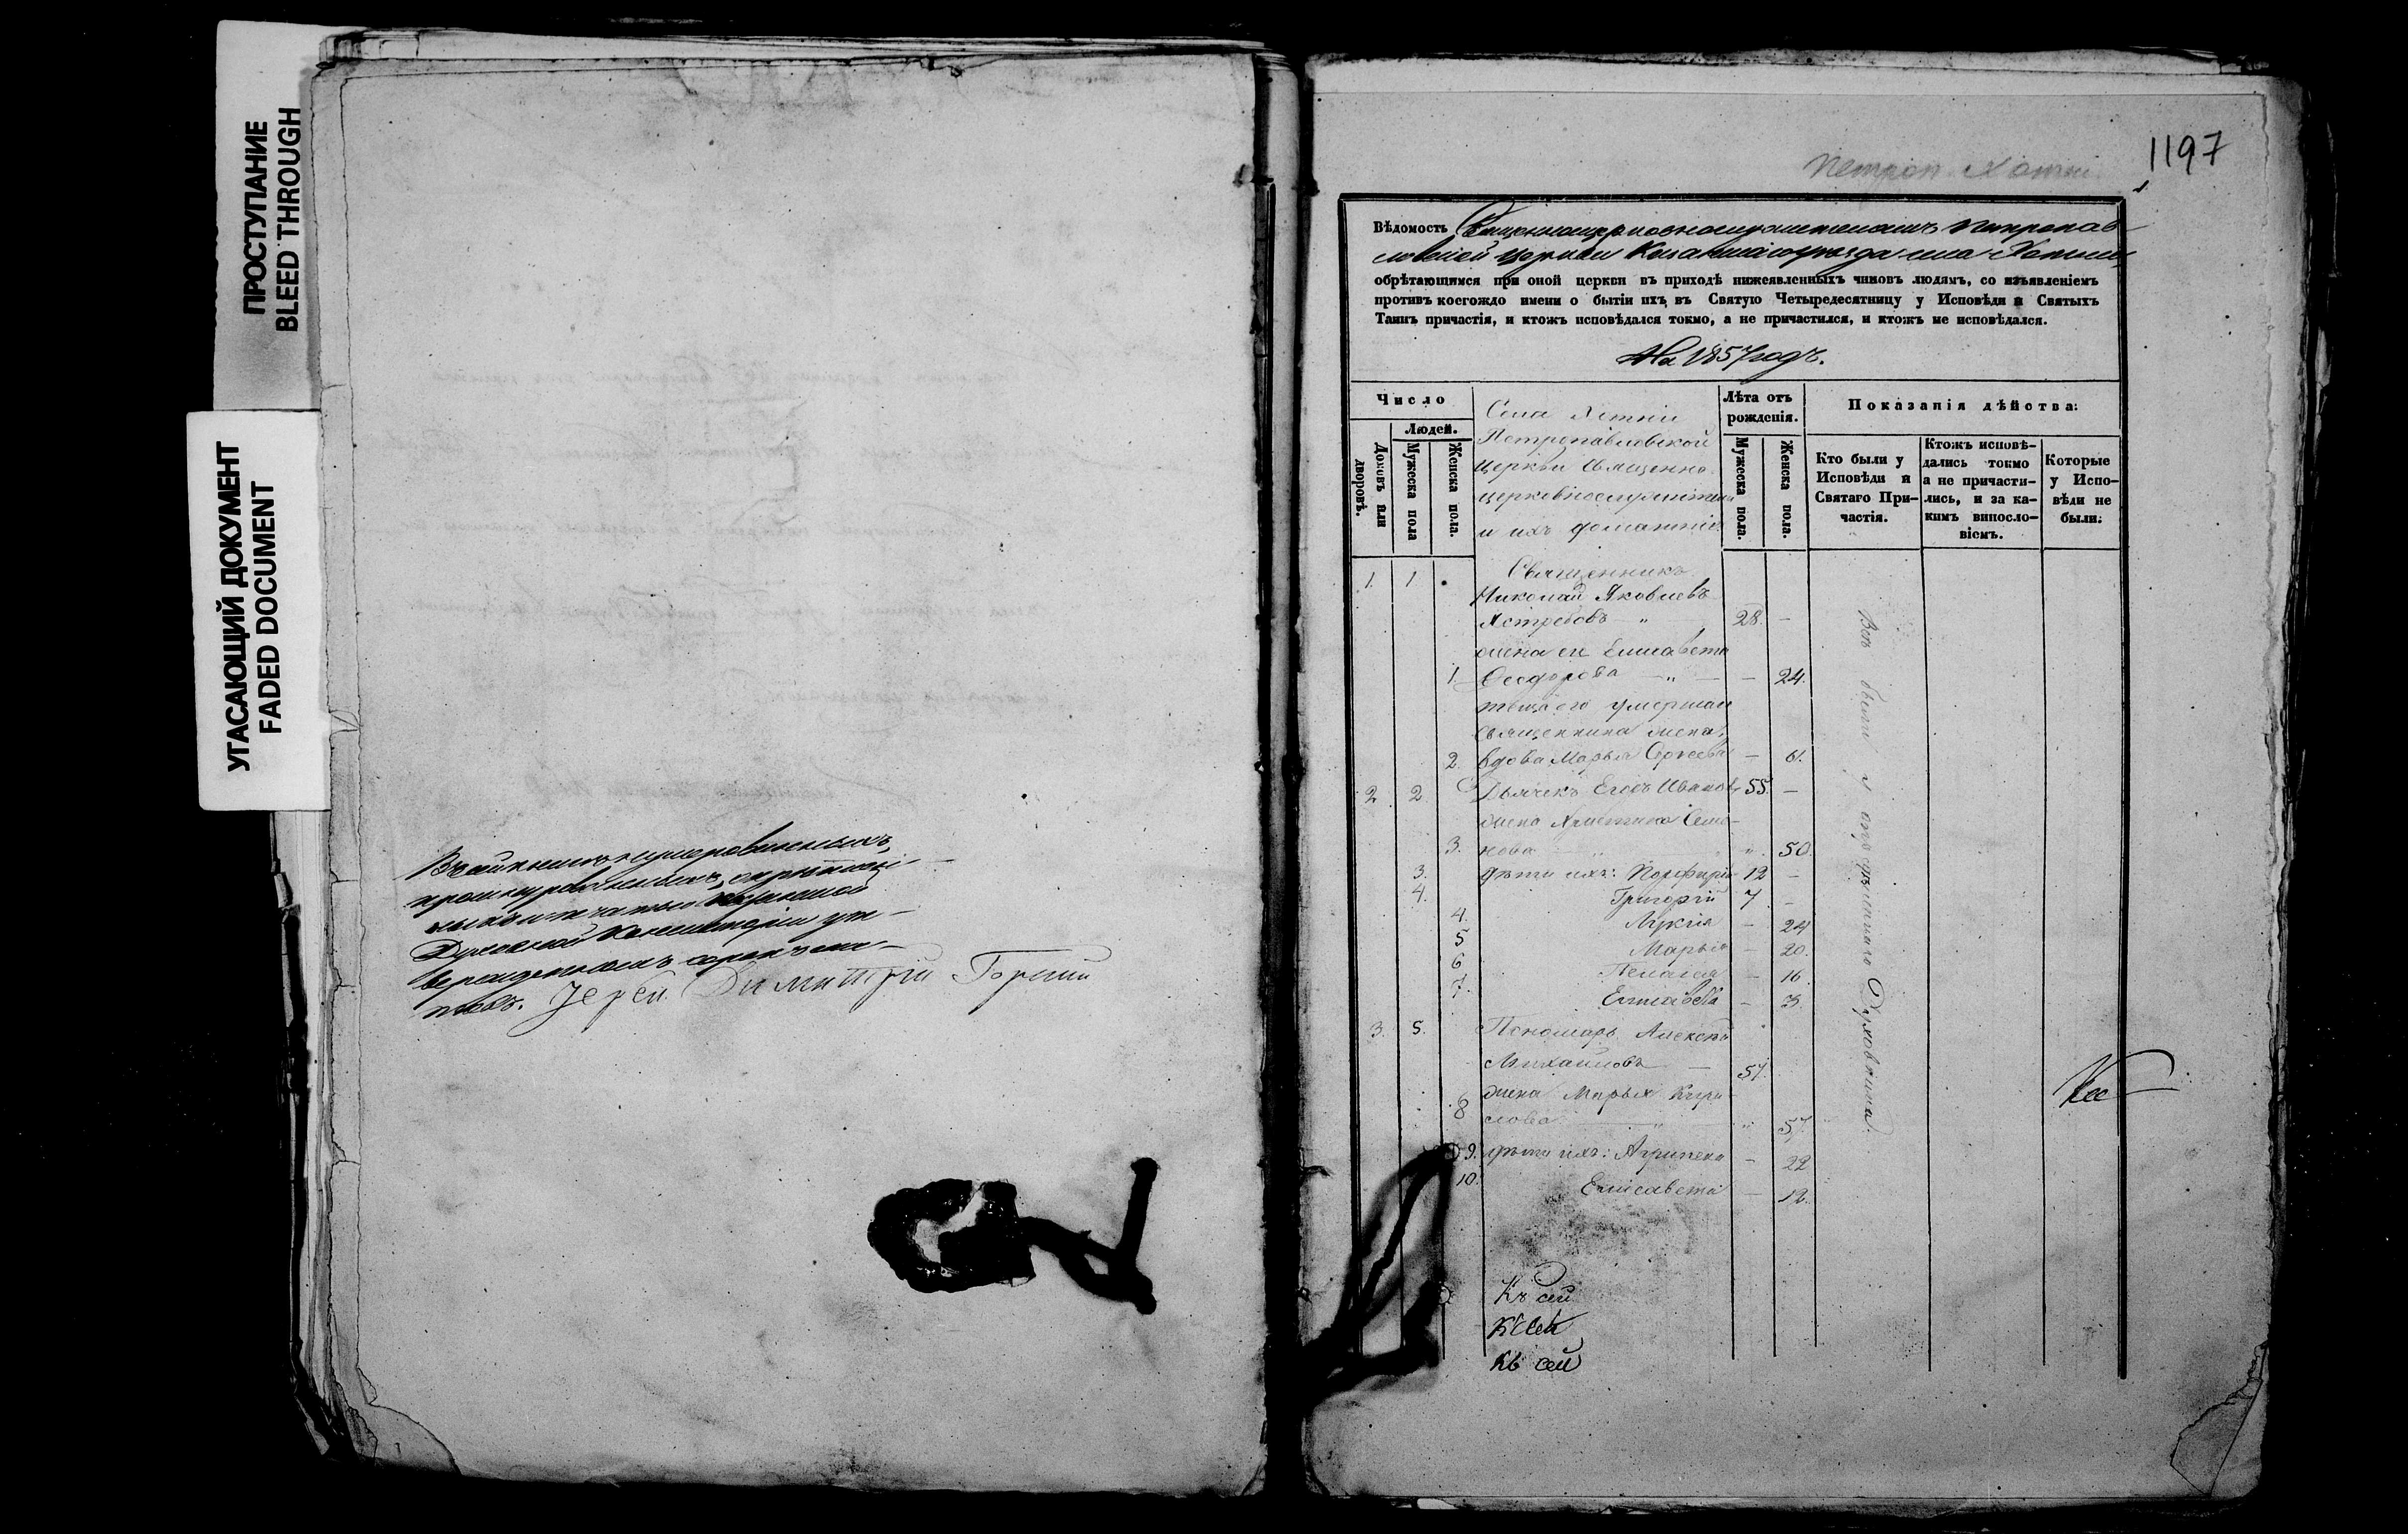 ПРОСТУПАНИЕ
BLEED THROUGH
УГАСАЮЩИЙ ДОКУМЕНТ
FADED DOCUMENT
Духовной Консисторіи
Іерей Димитрій
1197
Петроп. Хотни
Вѣдомость Священноцерковнослужителямъ Петропав-
ловской церкви уѣзда села Хотни,
обрѣтающимся при оной церкви въ приходѣ нижеявленныхъ чиновъ людямъ, со изъявленіемъ
противъ коегождо имени о бытіи ихъ въ Святую Четыредесятницу у Исповѣди и Святыхъ
Таинъ причастія, и ктожъ исповѣдался токмо, а не причастился, и ктожъ не исповѣдался.
На 1857 годъ.
Число
Людей.
Домовъ или дворовъ.
Мужеска пола
Женска пола.
Села Хотни
Петропавловской
церкви Священно-
церковнослужители
и ихъ домашніе
Лѣта отъ рожденія.
Мужеска пола.
Женска пола.
Показанія дѣйства:
Кто были у Исповѣди и Святаго Причастія.
Ктожъ исповѣдались токмо а не причастились, и за какимъ винословіемъ.
Которые у Исповѣди не были.
1. 1 Священникъ
Николай Яковлевъ
Ястребовъ „ 28. —
жена его Елисавета
1. Ѳеодорова — „ — — 24.
теща его умершаго
священника жена,
2. вдова Марья Сергеева — 61.
2. 2. Дьячекъ Егоръ Ивановъ 55. —
жена Христина Семе-
3. нова „ 50.
3. дѣти ихъ: Порфирій 12 —
4. Григорій 7. —
4. Лукія — 24
5 Марья — 20.
6 Пелагея — 16.
7. Елисавета — 3.
3. 5. Пономарь Алексѣй
Михайловъ — 57.
жена Марья Кири-
8 лова „ „ 57.
9. дѣти ихъ: Агрипена — 22
10. Елисавета — 12.
Всѣ были у отца Духовника.
Къ сей
Къ сей